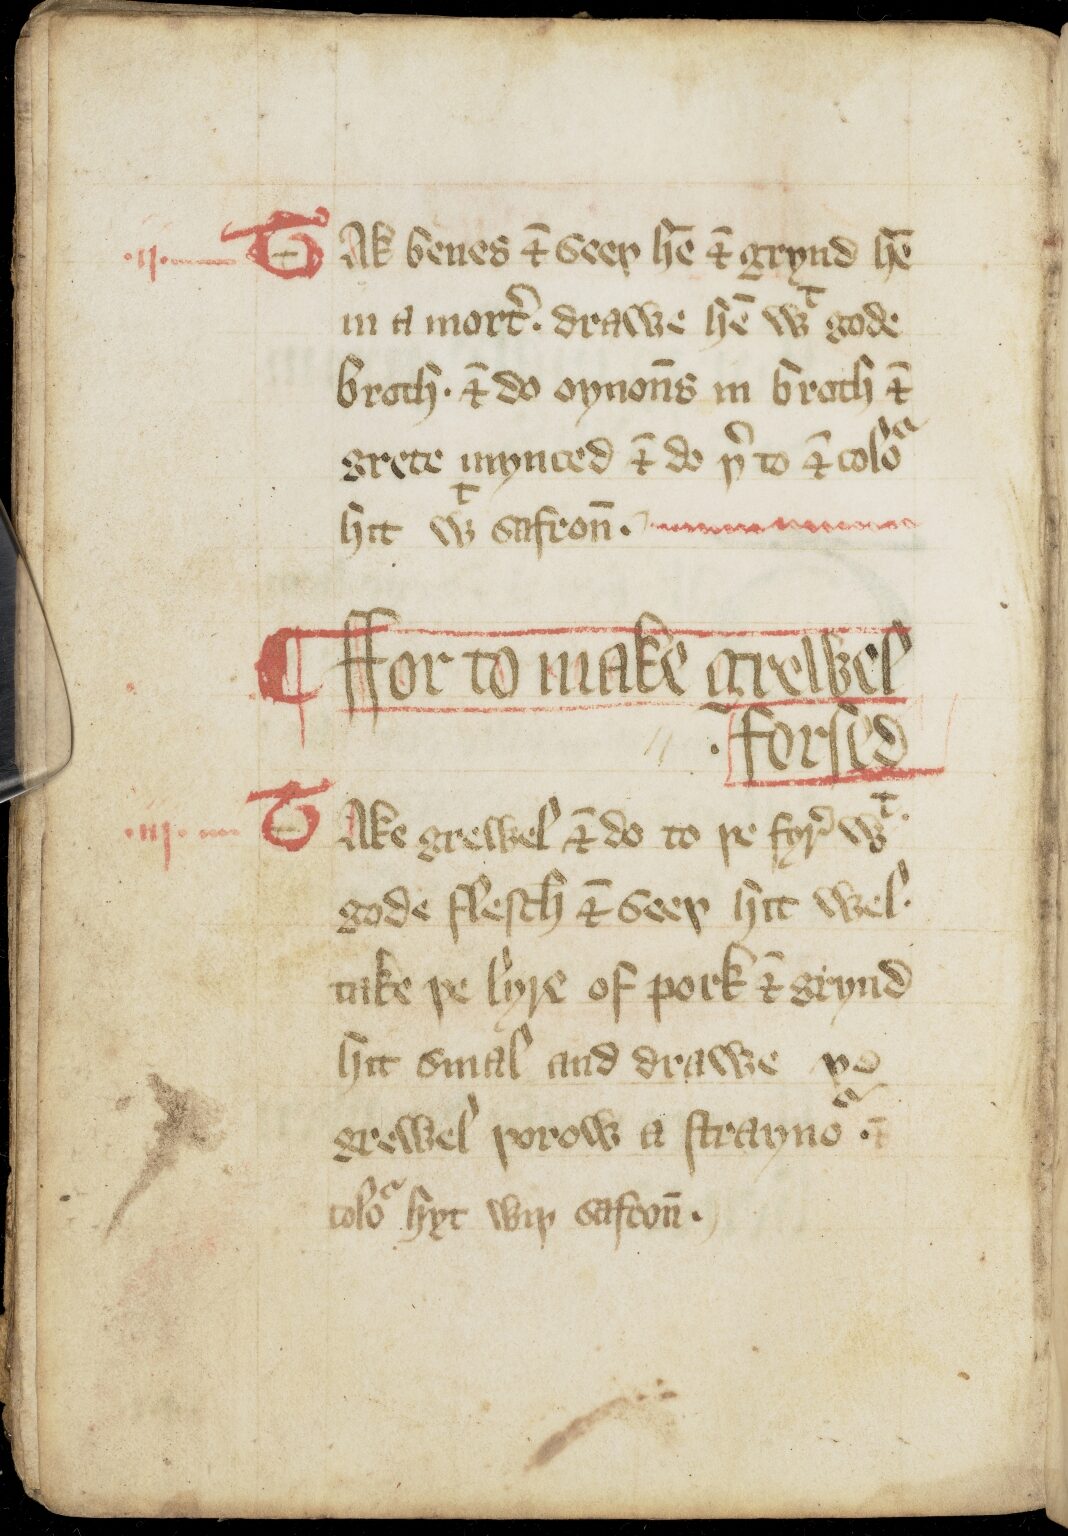 .ij. TAk benes ⁊ seeþ hē ⁊ grynd hē
in a morť. drawe hē wᵗ gode
broth. ⁊ do oynoñs in broth ⁊
grete mynced ⁊ do þ̉ to ⁊ coloᵃ
hit wᵗ safroñ.
¶ Ffor to make grewel
.forsed
.iij. TAke grewel ⁊ do to þe fyr̉ wᵗ.
gode flesch ⁊ seeþ hit wel.
take þe lyre of pork ⁊ grynd
hit smal and drawe þe
grewel þorow a straynoᵃ . ⁊
coloᵃ hyt wiþ safroñ.